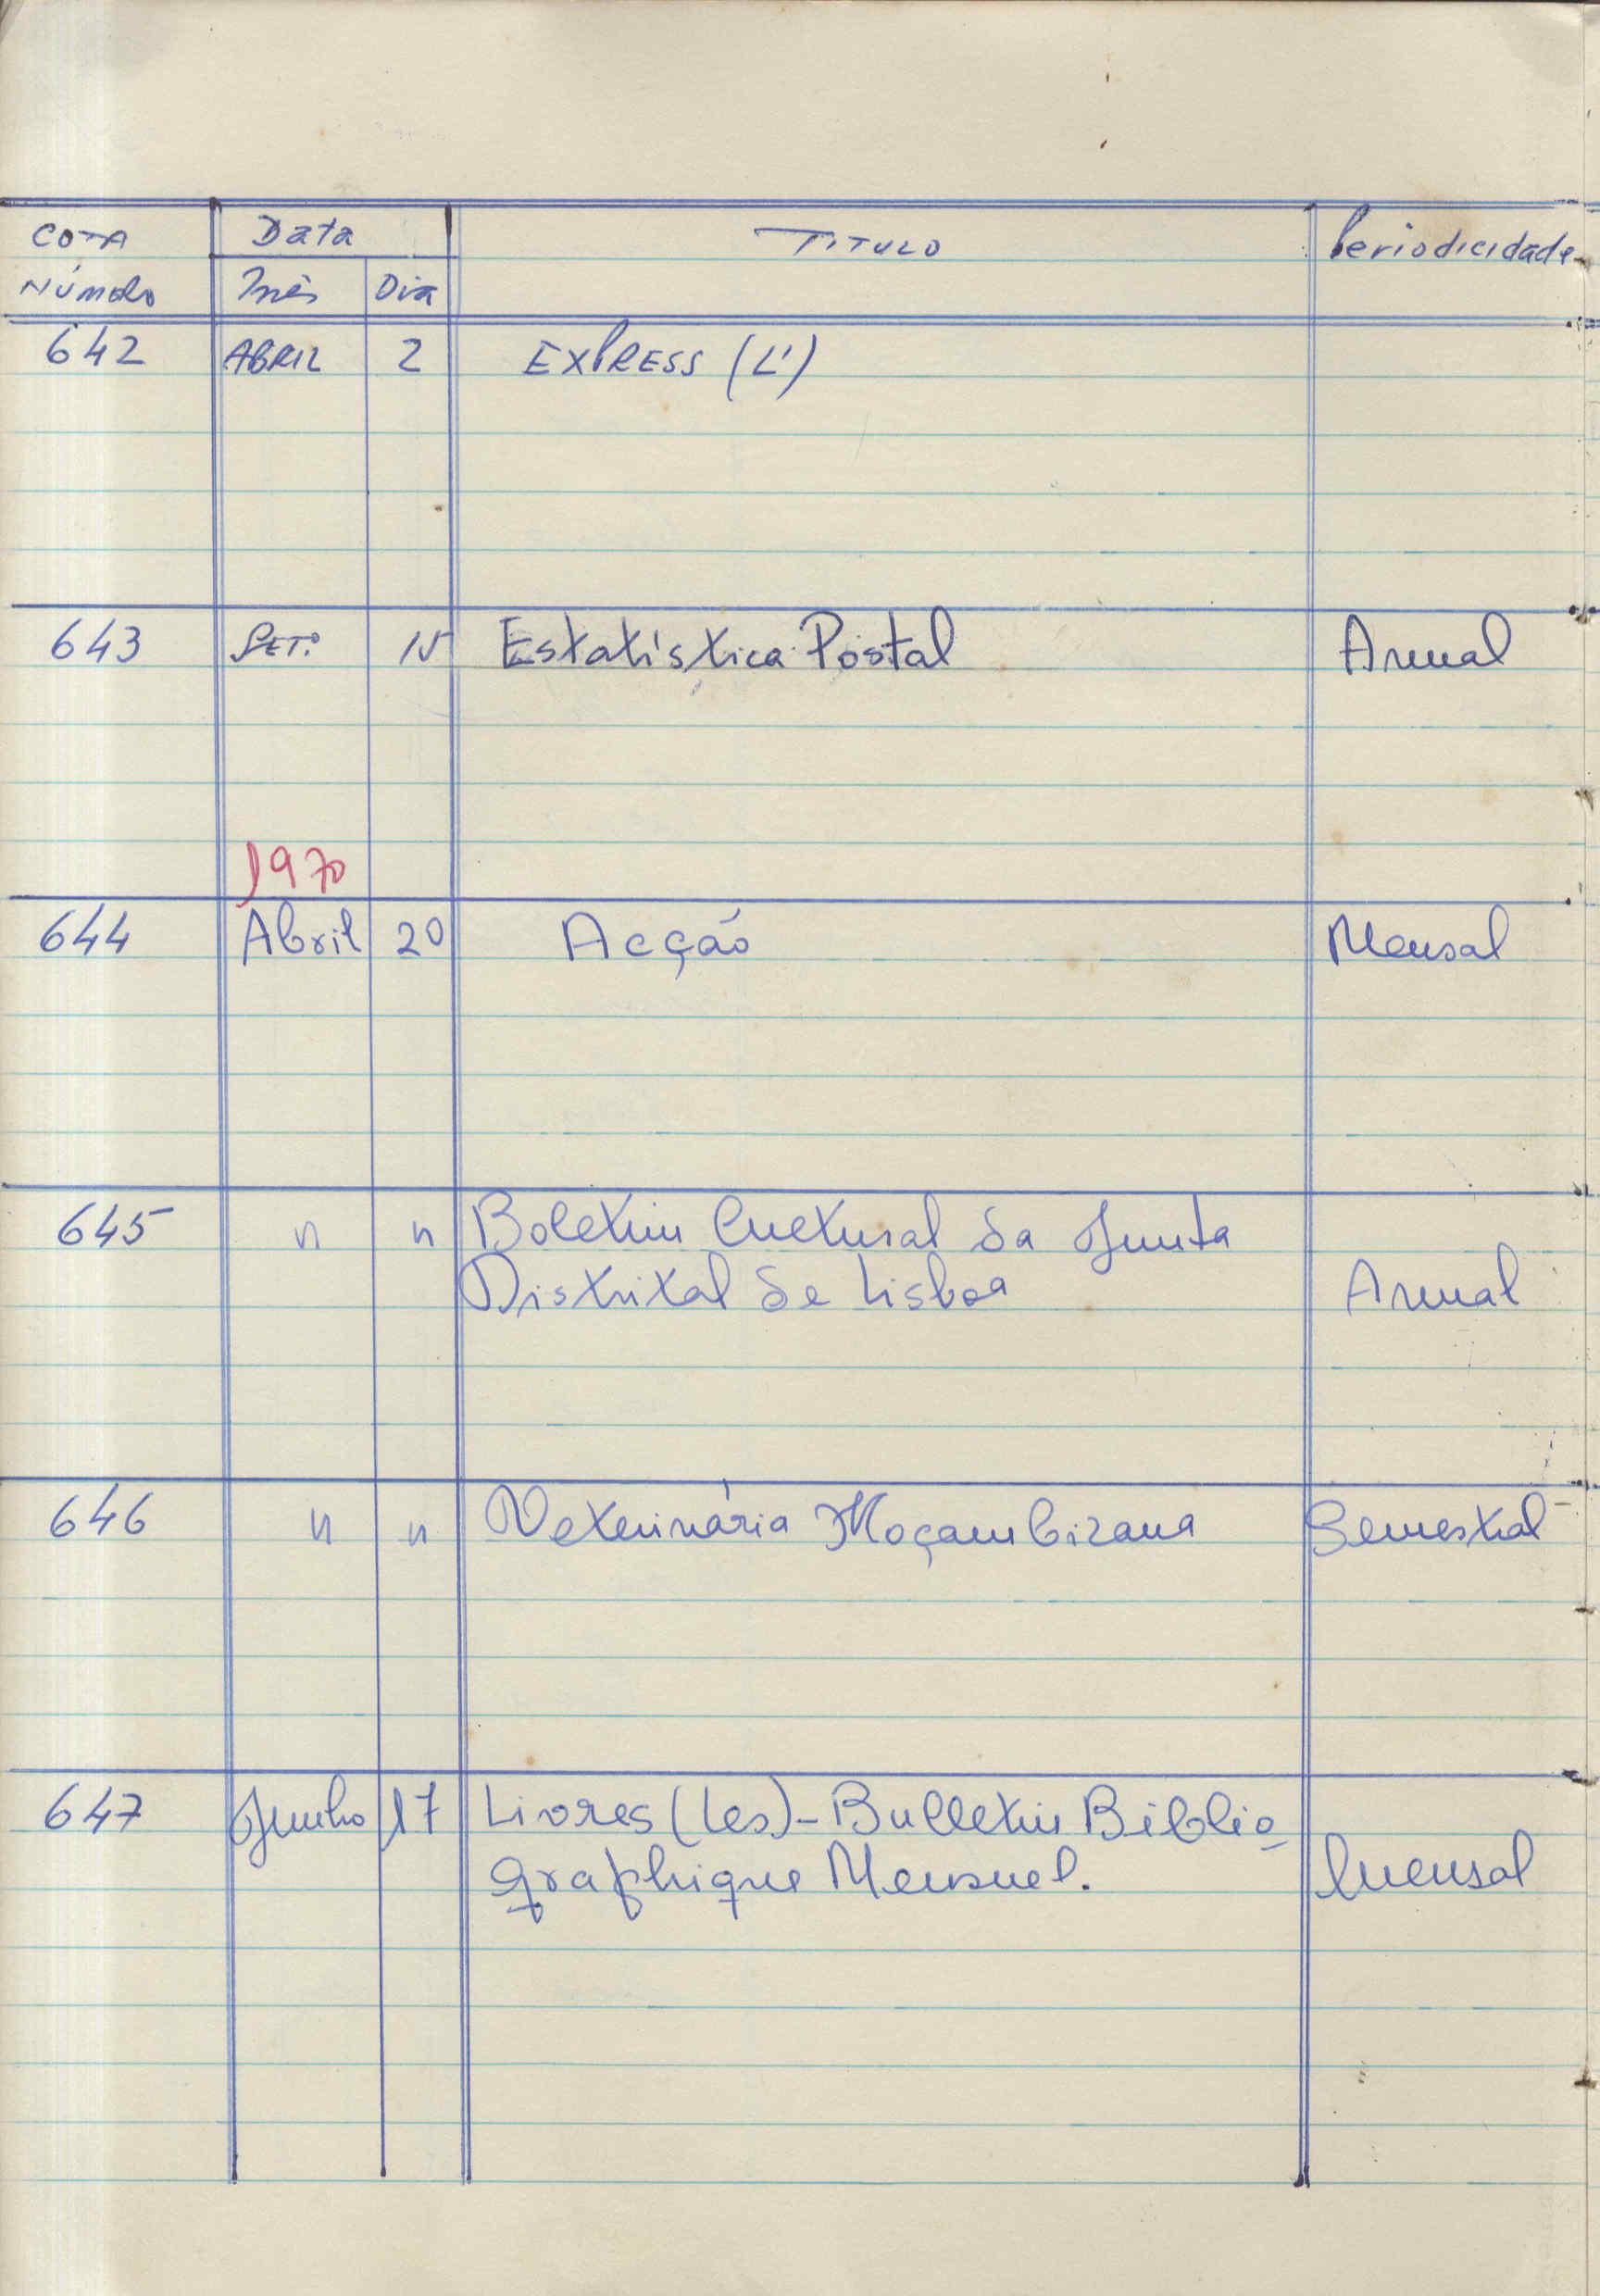 COTA Data TITULO Periodicidade
NÚMERO Mês Dia
642 ABRIL 2 EXPRESS (L')
643 SET.º 15 Estatística Postal Anual
1970
644 Abril 20 Acção Mensal
645 " " Boletim Cultural da Junta
Distrital de Lisboa Anual
646 " " Veterinária Moçambicana Semestral
647 Junho 17 Livres (Les) - Bulletin Biblio
graphique Mensuel. Mensal